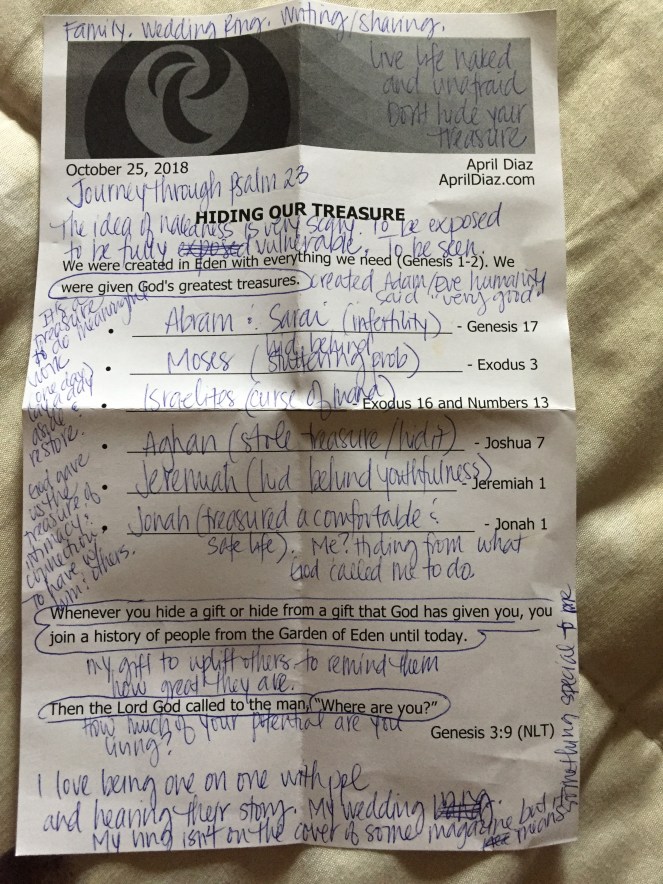 Family. Wedding Ring. Writing/Sharing.
Live life naked
and unafraid
Don't hide your
treasure
October 25, 2018
April Diaz
AprilDiaz.com
Journey through Psalm 23
HIDING OUR TREASURE
The idea of nakedness is very scary. To be exposed
to be fully vulnerable. To be seen.
We were created in Eden with everything we need (Genesis 1-2). We
were given God's greatest treasures. created Adam/Eve humanity
said "very good"
It's a
treasure
to do meaningful
work
one day
aside &
restore.
• Abram & Sarai (infertility) - Genesis 17
• Moses (hid behind stuttering prob) - Exodus 3
• Israelites (curse of mand) Exodus 16 and Numbers 13
• Aghan (stole treasure/hid it) - Joshua 7
• Jeremiah (hid behind youthfulness) - Jeremiah 1
• Jonah (treasured a comfortable & - Jonah 1
safe life). Me? Hiding from what
God called me to do.
God gave
us the
treasure of
intimacy &
connection.
To have w/
him & others.
Whenever you hide a gift or hide from a gift that God has given you, you
join a history of people from the Garden of Eden until today.
my gift to uplift others. to remind them
how great they are.
Then the Lord God called to the man, "Where are you?"
How much of your potential are you
living?
Genesis 3:9 (NLT)
I love being one on one with ppl
and hearing their story. My wedding
My ring isn't on the cover of some magazine but it
means
something special to me